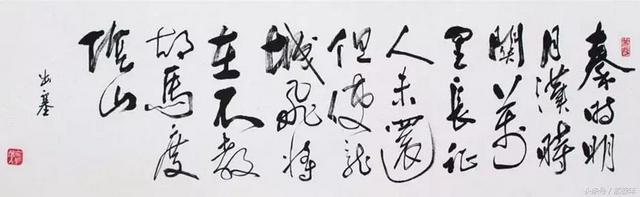 秦时明
月漢時
關萬
里長征
人未還
但使龙
城飛将
在不教
胡馬度
陰山
出塞
头条号